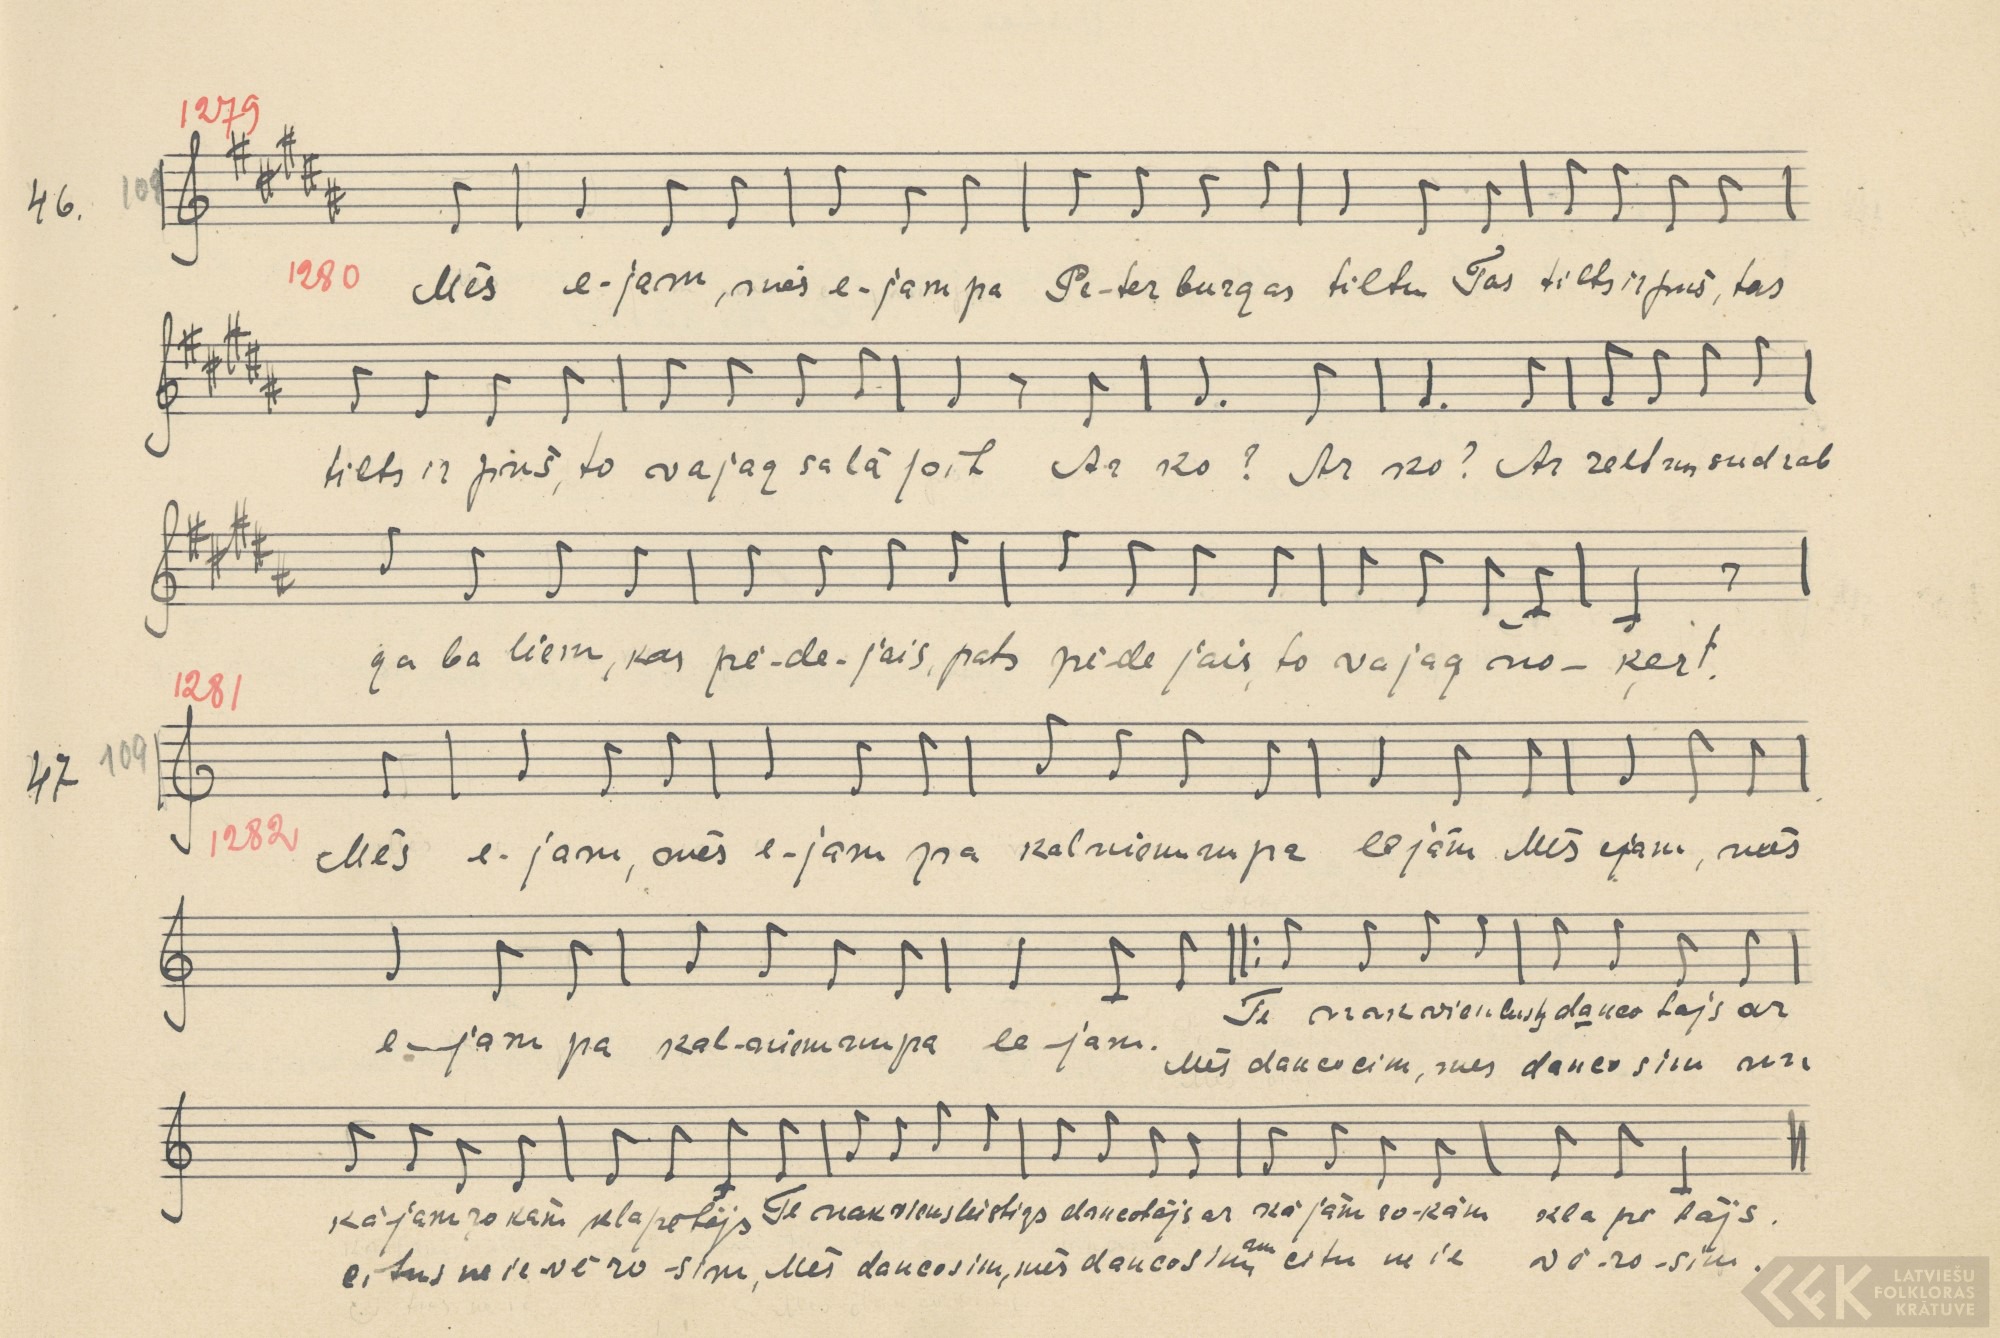 1279
46. 109
1280 Mēs e-jam, mēs e-jam pa Pē-terburgas tiltu Tas tilts ir pus, tas
tilts ir pus, to vajag salāpīt Ar ko? Ar ko? Ar zeltun sudrab
gabaliem, kas pē-de-jais, pats pēdejais, to vajag no- ķert.
1281
47 109
1282 Mēs e-jam, mēs e-jam pa kalniem un pa lejām Mēs ejam, mēs
e-jam pa kal-niem un pa le-jam.
Te nāk viens dancotājs ar
Mēs dancocim, mes dancosim un
kājam rokām klapetājs Te nāk viens listigs dancotājs ar kājām ro-kām klape tājs.
citus ne ie-vē ro-sim, Mēs dancosim, mēs dancosim, citu ne ie vē-ro-sim.
LATVIEŠU
FOLKLORAS
KRĀTUVE